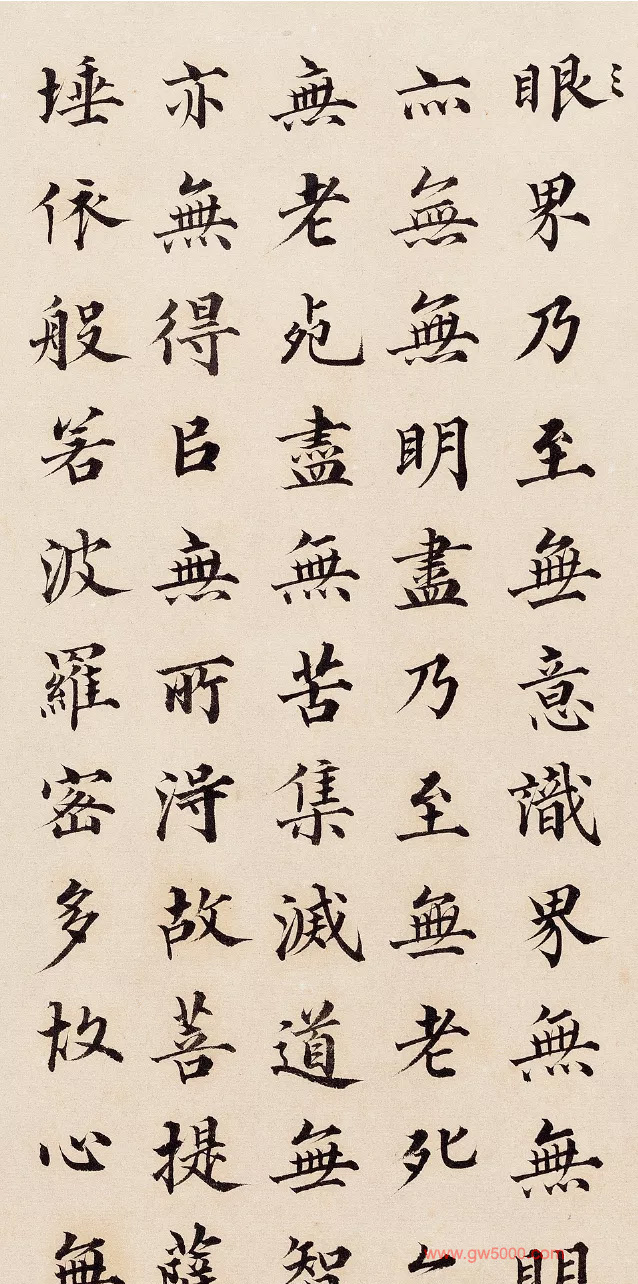 眼界乃至無意識界無無明
亦無無明盡乃至無老死亦
無老死盡無苦集滅道無智
亦無得㠯無所得故菩提薩
埵依般若波羅密多故心無
www.gw5000.com